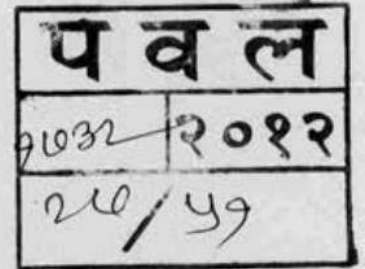 प व ल
१७३२ २०१२
२७/५१